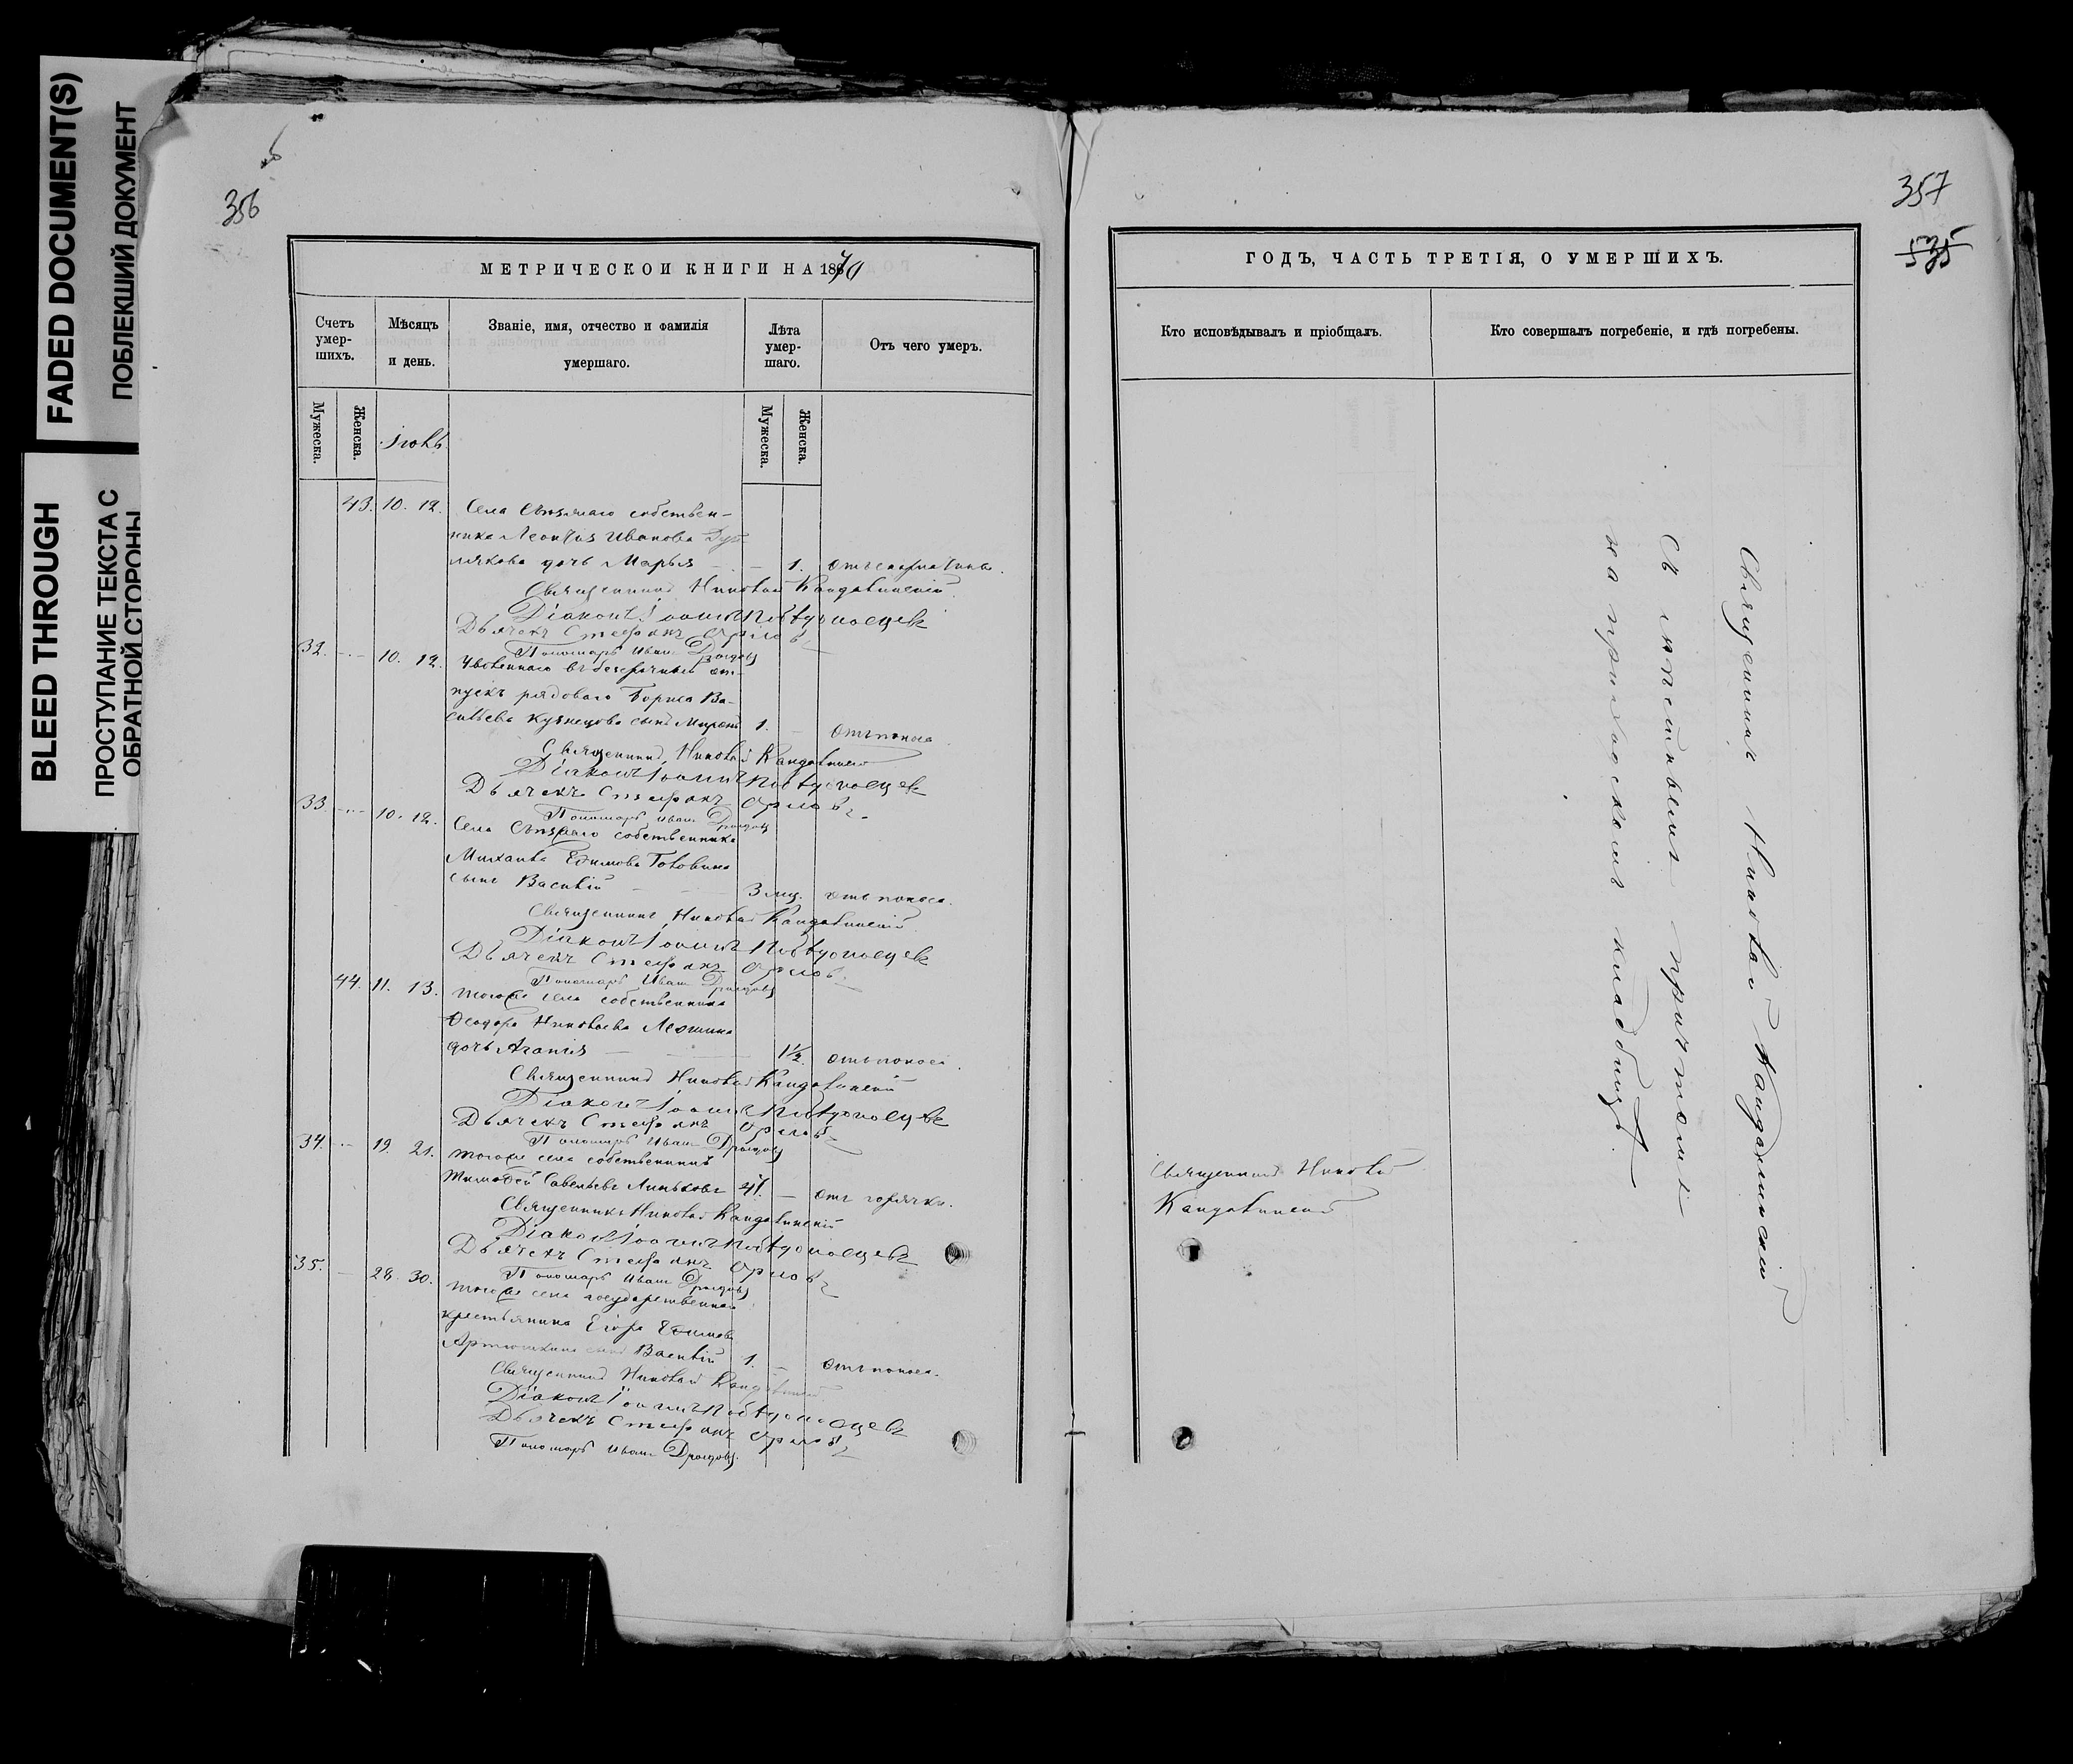 FADED DOCUMENT(S)
ПОБЛЕКШИЙ ДОКУМЕНТ
BLEED THROUGH
ПРОСТУПАНИЕ ТЕКСТА С
ОБРАТНОЙ СТОРОНЫ
356
МЕТРИЧЕСКОЙ КНИГИ НА 1870
Счетъ умер-шихъ.
Мѣсяцъ и день.
Званіе, имя, отчество и фамилія умершаго.
Лѣта умер-шаго.
Отъ чего умеръ.
Мужеска.
Женска.
Іюль
Мужеска.
Женска.
43. 10. 12. Села собствен-
ника Леонтія Иванова
дочь Марья 1.
Священникъ Николай
Діаконъ Іоаннъ
Дьячекъ Стефанъ Орловъ
Пономарь Иванъ Дроздовъ
32. 10. 12. Уволеннаго въ безсрочный от-
пускъ рядоваго Бориса Ва-
сильева Кузнецова сынъ 1. отъ поноса
Священникъ Николай
Діаконъ Іоаннъ
Дьячекъ Стефанъ Орловъ
Пономарь Иванъ Дроздовъ
33. 10. 12. Села собственника
Михаила Ефимова
сынъ Василій 3 мц. отъ поноса.
Священникъ Николай
Діаконъ Іоаннъ
Дьячекъ Стефанъ Орловъ
Пономарь Иванъ Дроздовъ
44. 11. 13. тогоже села собственника
Феодора Николаева
дочь Агапія 1½. отъ поноса.
Священникъ Николай
Діаконъ Іоаннъ
Дьячекъ Стефанъ Орловъ
Пономарь Иванъ Дроздовъ
34. 19. 21. тогоже села собственникъ
Тимофей Савельевъ отъ горячки.
Священникъ Николай
Діаконъ Іоаннъ
Дьячекъ Стефанъ Орловъ
Пономарь Иванъ Дроздовъ
35. 28. 30. тогоже села государственнаго
крестьянина Егора Ефимова
Артюшкина сынъ Василій 1. отъ поноса.
Священникъ Николай
Діаконъ Іоаннъ
Дьячекъ Стефанъ Орловъ
Пономарь Иванъ Дроздовъ.
357
535
ГОДЪ, ЧАСТЬ ТРЕТІЯ, О УМЕРШИХЪ.
Кто исповѣдывалъ и пріобщалъ.
Кто совершалъ погребеніе, и гдѣ погребены.
Священникъ Николай
Священникъ Николай
Съ причтомъ
на приходскомъ кладбищѣ